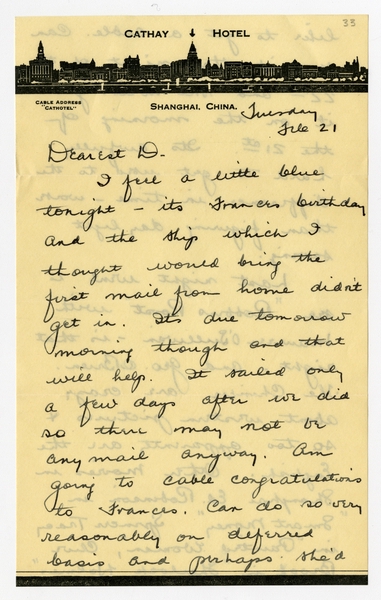 33
CATHAY HOTEL
CABLE ADDRESS
"CATHOTEL"
SHANGHAI, CHINA.
Tuesday
Feb 21
Dearest D-
I feel a little blue
tonight - its Frances birthday
and the ship which I
thought would bring the
first mail from home didn't
get in. Its due tomorrow
morning though and that
will help. It sailed only
a few days after we did
so there may not be
any mail anyway. Am
going to cable congratulations
to Frances. Can do so very
reasonably on deferred
basis and perhaps she'd